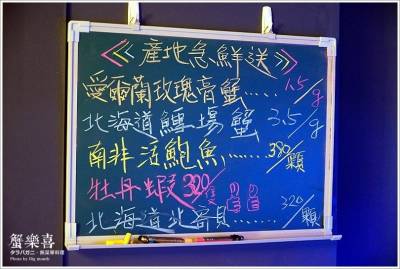 《產地急鮮送》
愛爾蘭玫瑰膏蟹..... 1.5/g
北海道鱈場蟹 3.5/g
南非活鮑魚...... 380/顆
牡丹蝦 320/隻
北海道北寄貝..... 320/顆
蟹樂喜
タラバガニ．無菜單料理